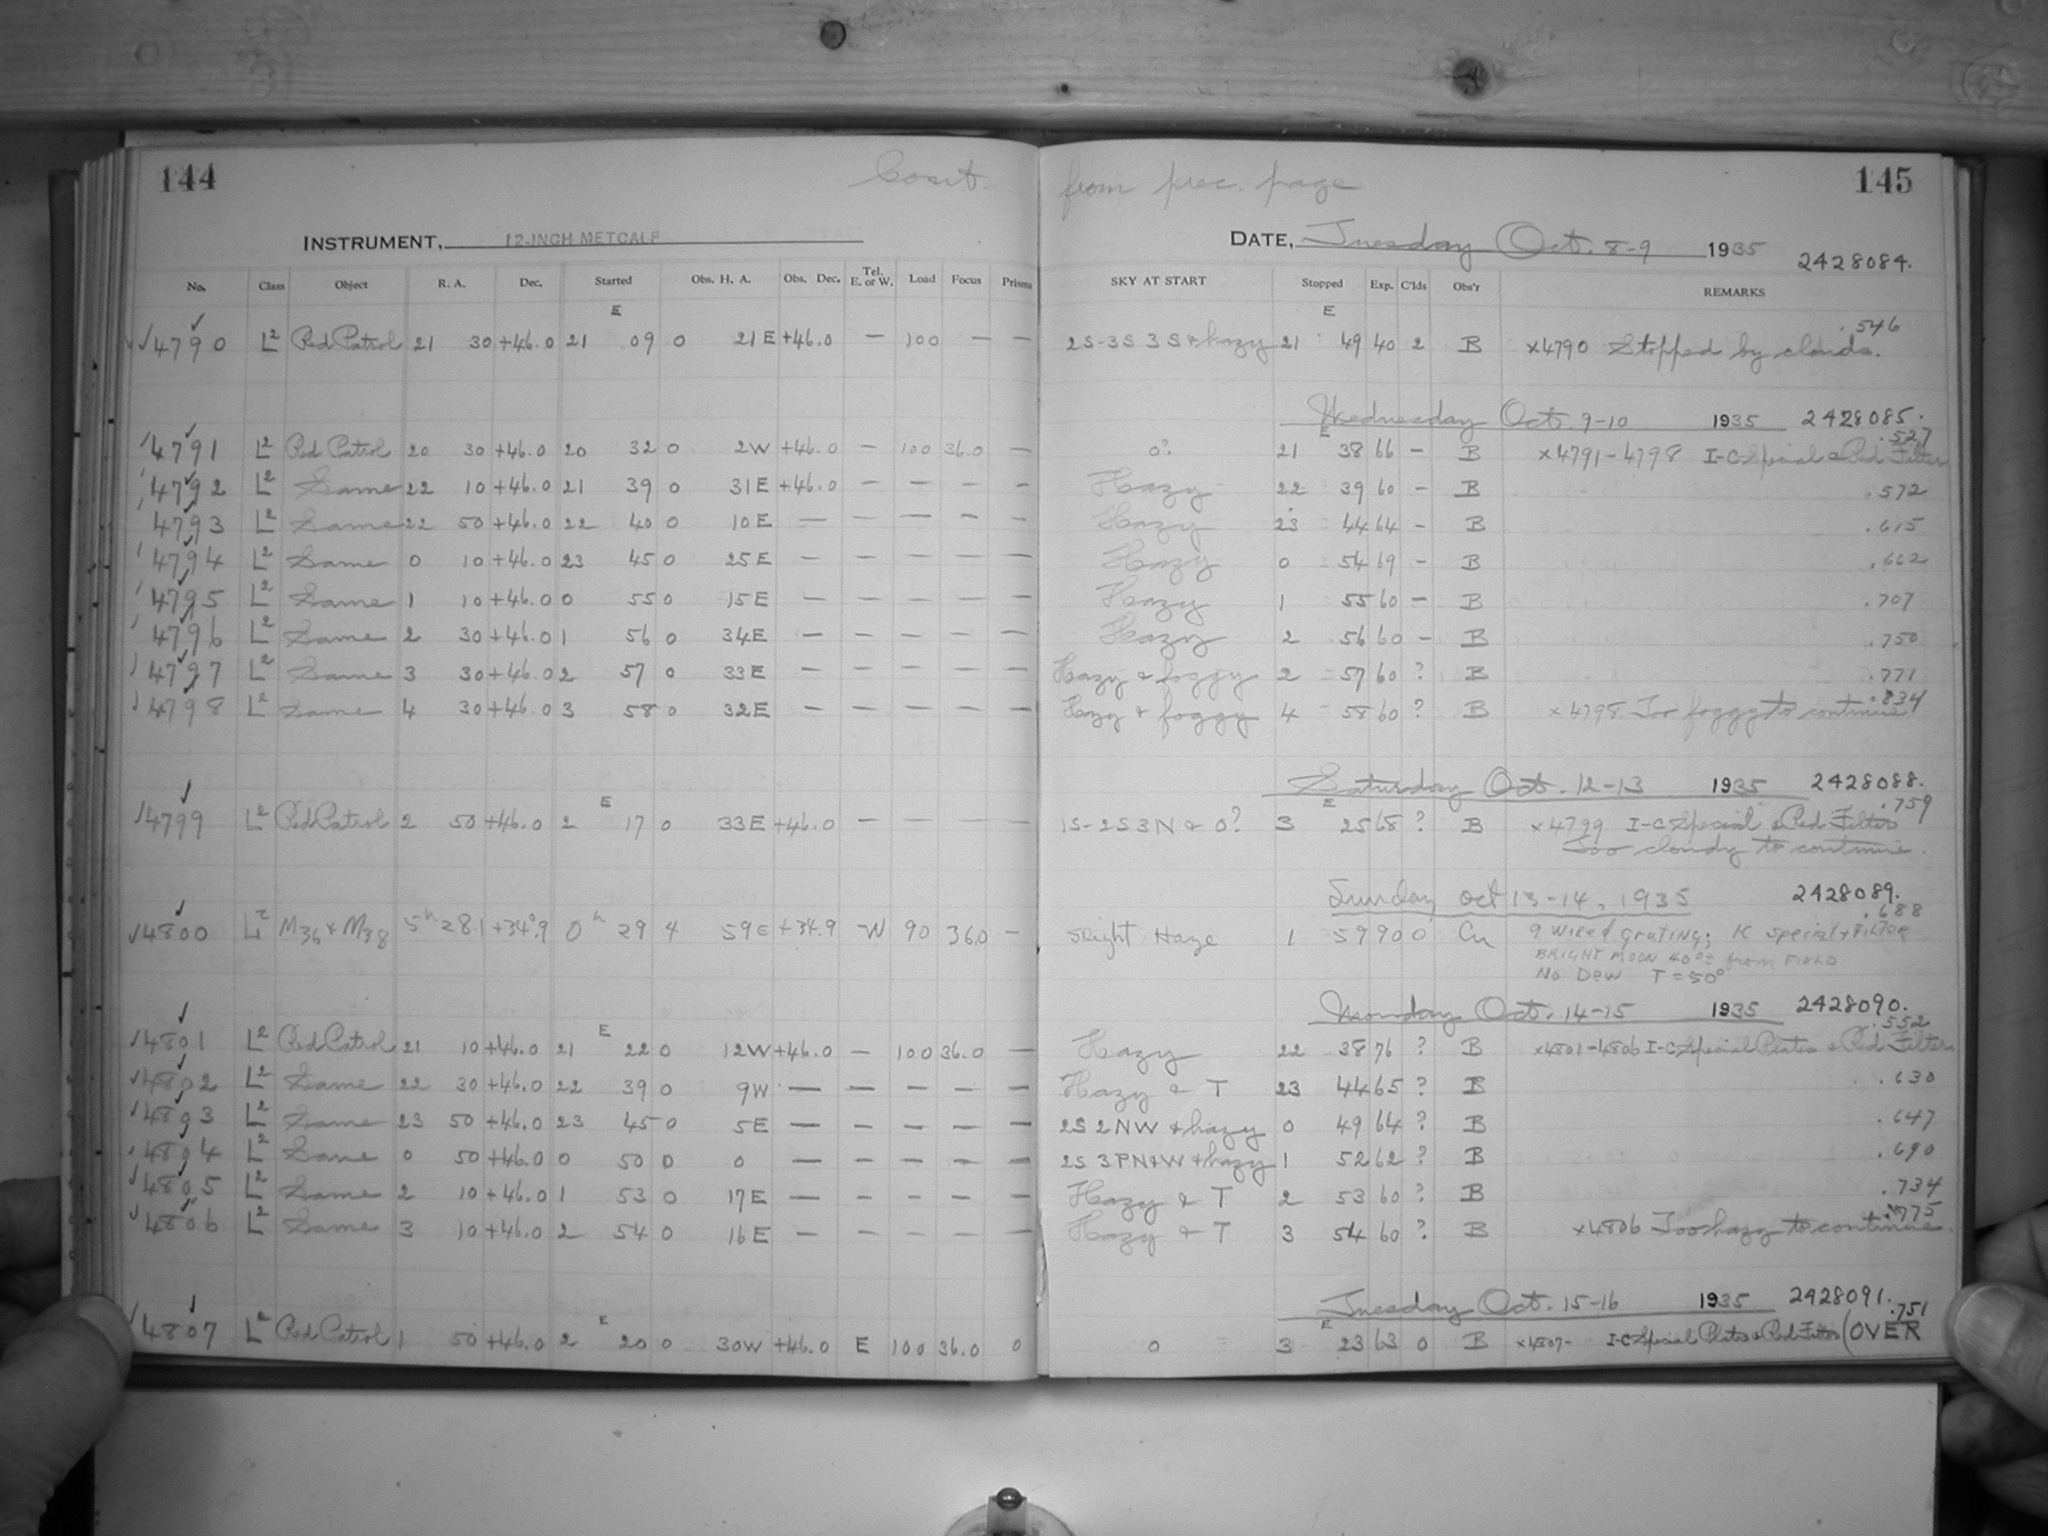 144 Cont. from prec. page 145
INSTRUMENT, 12-INCH METCALF DATE, Tuesday Oct. 8-9 1935 2428084.
No. Class Object R. A. Dec. Started Obs. H. A. Obs. Dec. Tel. E. or W. Load Focus Prisms SKY AT START Stopped Exp. C'lds Obs'r REMARKS
E E .546
4790 L2 Red Patrol 21 30 +46.0 21 09 0 21 E +46.0 — 100 — — 2S-3S 3S & hazy 21 49 40 2 B x4790 Stopped by clouds.
Wednesday Oct. 9-10 1935 2428085.
E .527
4791 L2 Red Patrol 20 30 +46.0 20 32 0 2W +46.0 — 100 36.0 — 0? 21 38 66 — B x4791-4798 I-C Special & Red Filter
4792 L2 Same 22 10 +46.0 21 39 0 31E +46.0 — — — — Hazy 22 39 60 — B .572
4793 L2 Same 22 50 +46.0 22 40 0 10E — — — — — Hazy 23 44 64 — B .615
4794 L2 Same 0 10 +46.0 23 45 0 25E — — — — — Hazy 0 54 69 — B .662
4795 L2 Same 1 10 +46.0 0 55 0 15E — — — — — Hazy 1 55 60 — B .707
4796 L2 Same 2 30 +46.0 1 56 0 34E — — — — — Hazy 2 56 60 — B .750
4797 L2 Same 3 30 +46.0 2 57 0 33E — — — — — Hazy & foggy 2 57 60 ? B .771
4798 L2 Same 4 30 +46.0 3 58 0 32E — — — — — Hazy & foggy 4 58 60 ? B x4798 Too foggy to continue .834
Saturday Oct. 12-13 1935 2428088.
E E .759
4799 L2 Red Patrol 2 50 +46.0 2 17 0 33E +46.0 — — — — 1S-2S3N & 0? 3 25 68 ? B x4799 I-C Special & Red Filter
Too cloudy to continue.
Sunday Oct 13-14, 1935 2428089.
.688
4800 L2 M36 & M38 5h 28.1 +34°.9 0h 29 4 59E +34.9 W 90 36.0 — Slight Haze 1 59 90 0 Cu 9 wired grating; K special + FILTOR
BRIGHT MOON 40°± from FIELD
No Dew T = 50°
Monday Oct. 14-15 1935 2428090.
E .552
4801 L2 Red Patrol 21 10 +46.0 21 22 0 12W +46.0 — 100 36.0 — Hazy 22 38 76 ? B x4801-4806 I-C Special Plates & Red Filter
4802 L2 Same 22 30 +46.0 22 39 0 9W — — — — — Hazy & T 23 44 65 ? B .630
4803 L2 Same 23 50 +46.0 23 45 0 5E — — — — — 2S 2NW & hazy 0 49 64 ? B .647
4804 L2 Same 0 50 +46.0 0 50 0 0 — — — — — 2S 3PN&W & hazy 1 52 62 ? B .690
4805 L2 Same 2 10 +46.0 1 53 0 17E — — — — — Hazy & T 2 53 60 ? B .734
4806 L2 Same 3 10 +46.0 2 54 0 16E — — — — — Hazy & T 3 54 60 ? B x4806 Too hazy to continue. .775
Tuesday Oct. 15-16 1935 2428091.
E E .751
4807 L2 Red Patrol 1 50 +46.0 2 20 0 30W +46.0 E 100 36.0 0 0 3 23 63 0 B x4807- I-C Special Plates & Red Filter (OVER